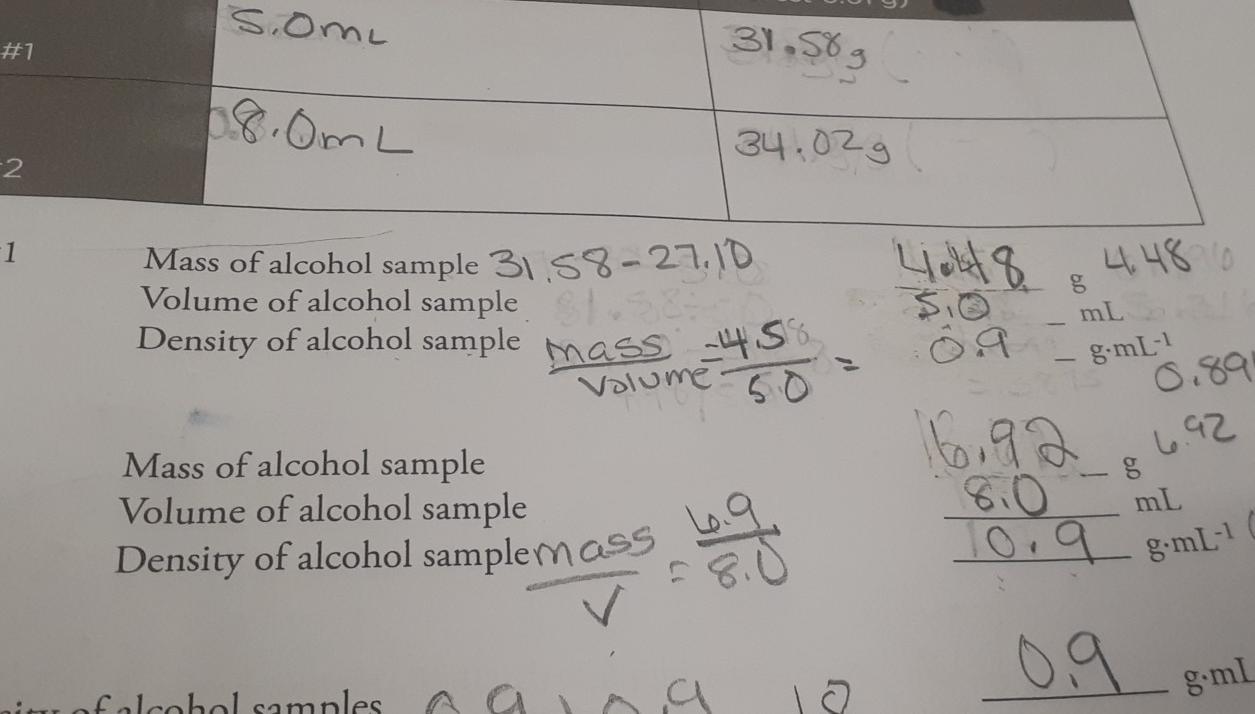 #1 5.0mL 31.58g
2 8.0mL 34.02g
1 Mass of alcohol sample 31.58-27.10 4.48 g 4.48
Volume of alcohol sample 5.0 mL
Density of alcohol sample mass/volume = 4.58/5.0 = 0.9 g·mL-1
0.89
Mass of alcohol sample 6.92 g 6.92
Volume of alcohol sample 8.0 mL
Density of alcohol sample mass/V = 6.9/8.0 0.9 g·mL-1
of alcohol samples 0.9 g·mL